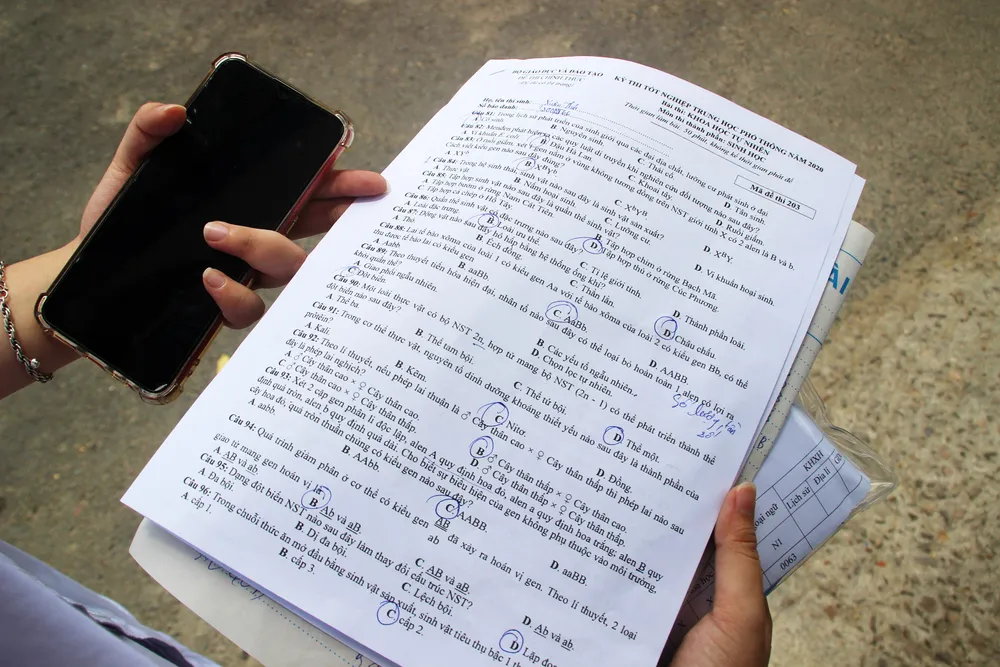 BỘ GIÁO DỤC VÀ ĐÀO TẠO
ĐỀ THI CHÍNH THỨC
KỲ THI TỐT NGHIỆP TRUNG HỌC PHỔ THÔNG NĂM 2020
Bài thi: KHOA HỌC TỰ NHIÊN
Môn thi thành phần: SINH HỌC
Thời gian làm bài: 50 phút, không kể thời gian phát đề
Họ, tên thí sinh:
Số báo danh:
Mã đề thi 203
Câu 81: Trong lịch sử phát triển của sinh giới qua các đại địa chất, lưỡng cư phát sinh ở đại
A. Cổ sinh. B. Nguyên sinh. C. Thái cổ. D. Tân sinh.
Câu 82: Menđen phát hiện ra các quy luật di truyền khi nghiên cứu đối tượng nào sau đây?
A. Vi khuẩn E. coli. B. Đậu Hà Lan. C. Khoai tây. D. Ruồi giấm.
Câu 83: Ở ruồi giấm, xét 1 gen nằm ở vùng không tương đồng trên NST giới tính X có 2 alen là B và b.
Cách viết kiểu gen nào sau đây đúng?
A. XYᵇ. B. XᴮYᵇ. C. XᵇYᴮ. D. XᴮY.
Câu 84: Trong hệ sinh thái, sinh vật nào sau đây là sinh vật sản xuất?
A. Thực vật. B. Nấm hoại sinh. C. Lưỡng cư. D. Vi khuẩn hoại sinh.
Câu 85: Tập hợp sinh vật nào sau đây là quần thể sinh vật?
A. Tập hợp bướm ở rừng Nam Cát Tiên. B. Tập hợp chim ở rừng Bạch Mã.
C. Tập hợp cá chép ở Hồ Tây. D. Tập hợp thú ở rừng Cúc Phương.
Câu 86: Quần thể sinh vật có đặc trưng nào sau đây?
A. Loài đặc trưng. B. Loài ưu thế. C. Tỉ lệ giới tính. D. Thành phần loài.
Câu 87: Động vật nào sau đây hô hấp bằng hệ thống ống khí?
A. Thỏ. B. Ếch đồng. C. Thằn lằn. D. Châu chấu.
Câu 88: Lai tế bào xôma của loài 1 có kiểu gen Aa với tế bào xôma của loài 2 có kiểu gen Bb, có thể
thu được tế bào lai có kiểu gen
A. Aabb. B. aaBb. C. AaBb. D. AABB.
Câu 89: Theo thuyết tiến hóa hiện đại, nhân tố nào sau đây có thể loại bỏ hoàn toàn 1 alen có lợi ra
khỏi quần thể?
A. Giao phối ngẫu nhiên. B. Các yếu tố ngẫu nhiên.
C. Đột biến. D. Chọn lọc tự nhiên.
Câu 90: Một loài thực vật có bộ NST 2n, hợp tử mang bộ NST (2n - 1) có thể phát triển thành thể
đột biến nào sau đây?
A. Thể ba. B. Thể tam bội. C. Thể tứ bội. D. Thể một.
Câu 91: Trong cơ thể thực vật, nguyên tố dinh dưỡng khoáng thiết yếu nào sau đây là thành phần của
prôtêin?
A. Kali. B. Kẽm. C. Nitơ. D. Đồng.
Câu 92: Theo lí thuyết, nếu phép lai thuận là ♂ Cây thân cao × ♀ Cây thân thấp thì phép lai nào sau
đây là phép lai nghịch?
A. ♂ Cây thân cao × ♀ Cây thân cao. B. ♂ Cây thân thấp × ♀ Cây thân cao.
C. ♂ Cây thân cao × ♀ Cây thân thấp. D. ♂ Cây thân thấp × ♀ Cây thân thấp.
Câu 93: Xét 2 cặp gen phân li độc lập, alen A quy định hoa đỏ, alen a quy định hoa trắng; alen B quy
định quả tròn, alen b quy định quả dài. Cho biết sự biểu hiện của gen không phụ thuộc vào môi trường,
cây hoa đỏ, quả tròn thuần chủng có kiểu gen nào sau đây?
A. aabb. B. AAbb. C. AABB. D. aaBB.
Câu 94: Quá trình giảm phân ở cơ thể có kiểu gen AB/ab đã xảy ra hoán vị gen. Theo lí thuyết, 2 loại
giao tử mang gen hoán vị là
A. AB và ab. B. Ab và aB. C. AB và aB. D. Ab và ab.
Câu 95: Dạng đột biến NST nào sau đây làm thay đổi cấu trúc NST?
A. Đa bội. B. Dị đa bội. C. Lệch bội. D. Lặp đoạn
Câu 96: Trong chuỗi thức ăn mở đầu bằng sinh vật sản xuất, sinh vật tiêu thụ bậc 1 th
A. cấp 1. B. cấp 3. C. cấp 2.
ÀI
KHXH
Lịch sử
Địa lí
oại ngữ
N1
0063